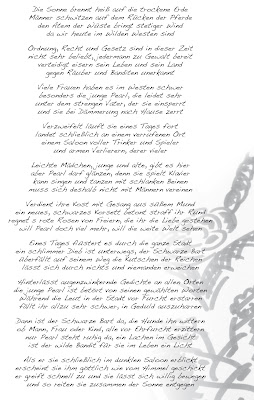 Die Sonne brennt heiß auf die trockene Erde
Männer schwitzen auf dem Rücken der Pferde
den Atem der Wüste bringt stetiger Wind
da wir heute im Wilden Westen sind
Ordnung, Recht und Gesetz sind in dieser Zeit
nicht sehr beliebt, jedermann zu Gewalt bereit
verteidigt eisern sein Leben und sein Land
gegen Räuber und Banditen unerkannt
Viele Frauen haben es im Westen schwer
besonders die junge Pearl, die leidet sehr
unter dem strengen Vater, der sie einsperrt
und sie bei Dämmerung nach Hause zerrt
Verzweifelt läuft sie eines Tages fort
landet schließlich an einem verruchten Ort
einem Saloon voller Trinker und Spieler
und armen Verlierern, derer vieler
Leichte Mädchen, junge und alte, gibt es hier
aber Pearl darf glänzen, denn sie spielt Klavier
kann singen und tanzen mit schlanken Beinen
muss sich deshalb nicht mit Männern vereinen
Verdient ihre Kost mit Gesang aus süßem Mund
ein neues, schwarzes Korsett betont straff ihr Rund
regnet's rote Rosen von Freiern, die ihr die Liebe gestehen
will Pearl doch viel mehr, will die weite Welt sehen
Eines Tages flüstert es durch die ganze Stadt
ein schlimmer Dieb ist unterwegs, der Schwarze Bart
überfällt auf seinem Weg die Kutschen der Reichen
lässt sich durch nichts und niemanden erweichen
Hinterlässt augenzwinkernde Gedichte an allen Orten
die junge Pearl ist betört von seinen gewählten Worten
Während die Leut in der Stadt vor Furcht erstarren
fällt ihr allzu sehr schwer, in Geduld auszuharren
Dann ist der Schwarze Bart da, die Hunde ihn wittern
ob Mann, Frau oder Kind, alle vor Ehrfurcht erzittern
nur Pearl steht ruhig da, ein Lachen im Gesicht
ist der wilde Bandit für sie im Leben ein Licht
Als er sie schließlich im dunklen Saloon erblickt
erscheint sie ihm göttlich wie vom Himmel geschickt
er greift schnell zu und sie lässt sich willig bewegen
und so reiten sie zusammen der Sonne entgegen